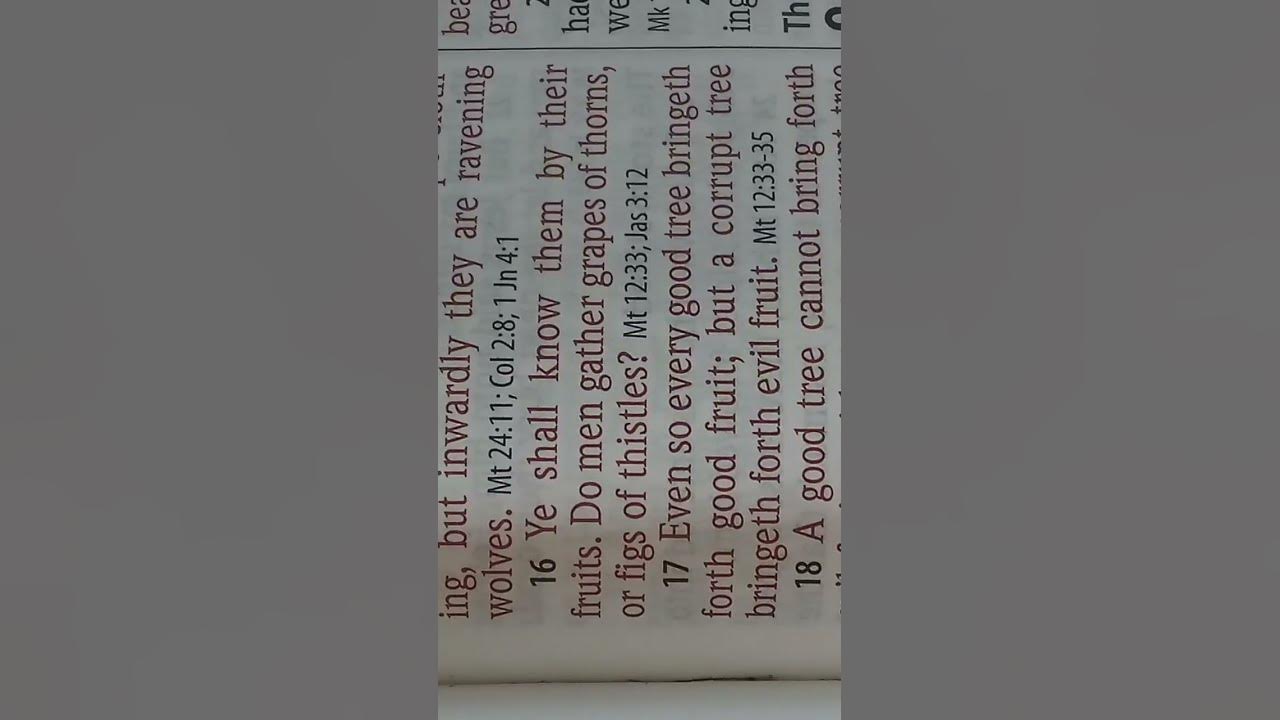 ing, but inwardly they are ravening
wolves. Mt 24:11; Col 2:8; 1 Jn 4:1
16 Ye shall know them by their
fruits. Do men gather grapes of thorns,
or figs of thistles? Mt 12:33; Jas 3:12
17 Even so every good tree bringeth
forth good fruit; but a corrupt tree
bringeth forth evil fruit. Mt 12:33-35
18 A good tree cannot bring forth
bea
gre
2
had
we
Mk
ing
Th